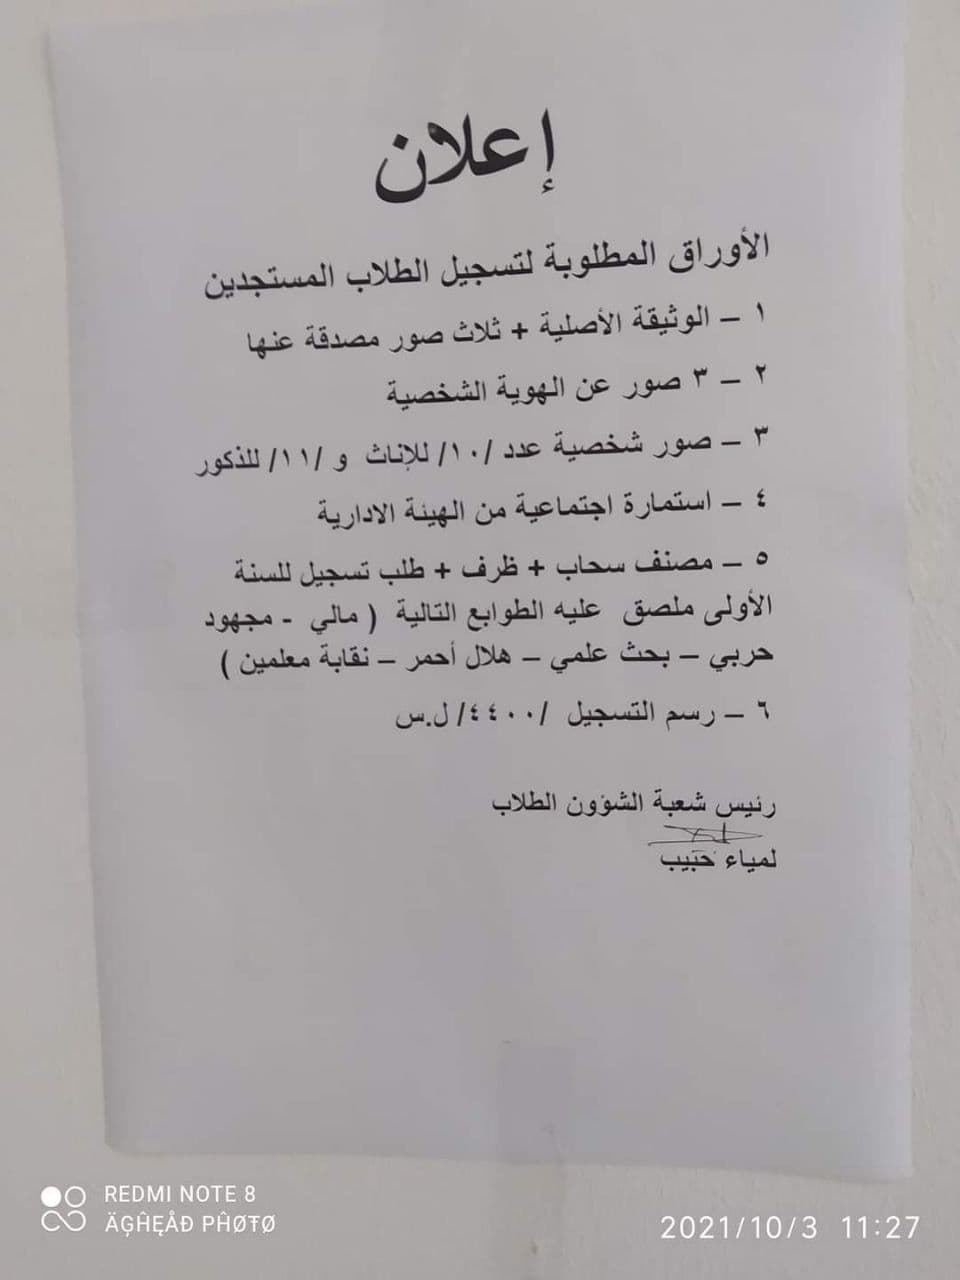 إعلان
الأوراق المطلوبة لتسجيل الطلاب المستجدين
١ – الوثيقة الأصلية + ثلاث صور مصدقة عنها
٢ – ٣ صور عن الهوية الشخصية
٣ – صور شخصية عدد /١٠/ للإناث و /١١/ للذكور
٤ – استمارة اجتماعية من الهيئة الادارية
٥ – مصنف سحاب + ظرف + طلب تسجيل للسنة
الأولى ملصق عليه الطوابع التالية ( مالي - مجهود
حربي – بحث علمي – هلال أحمر – نقابة معلمين )
٦ – رسم التسجيل /٤٤٠٠/ ل.س
رئيس شعبة الشؤون الطلاب
لمياء حبيب
REDMI NOTE 8
ÄĢĤĘÅĐ PĤØŦØ
2021/10/3 11:27